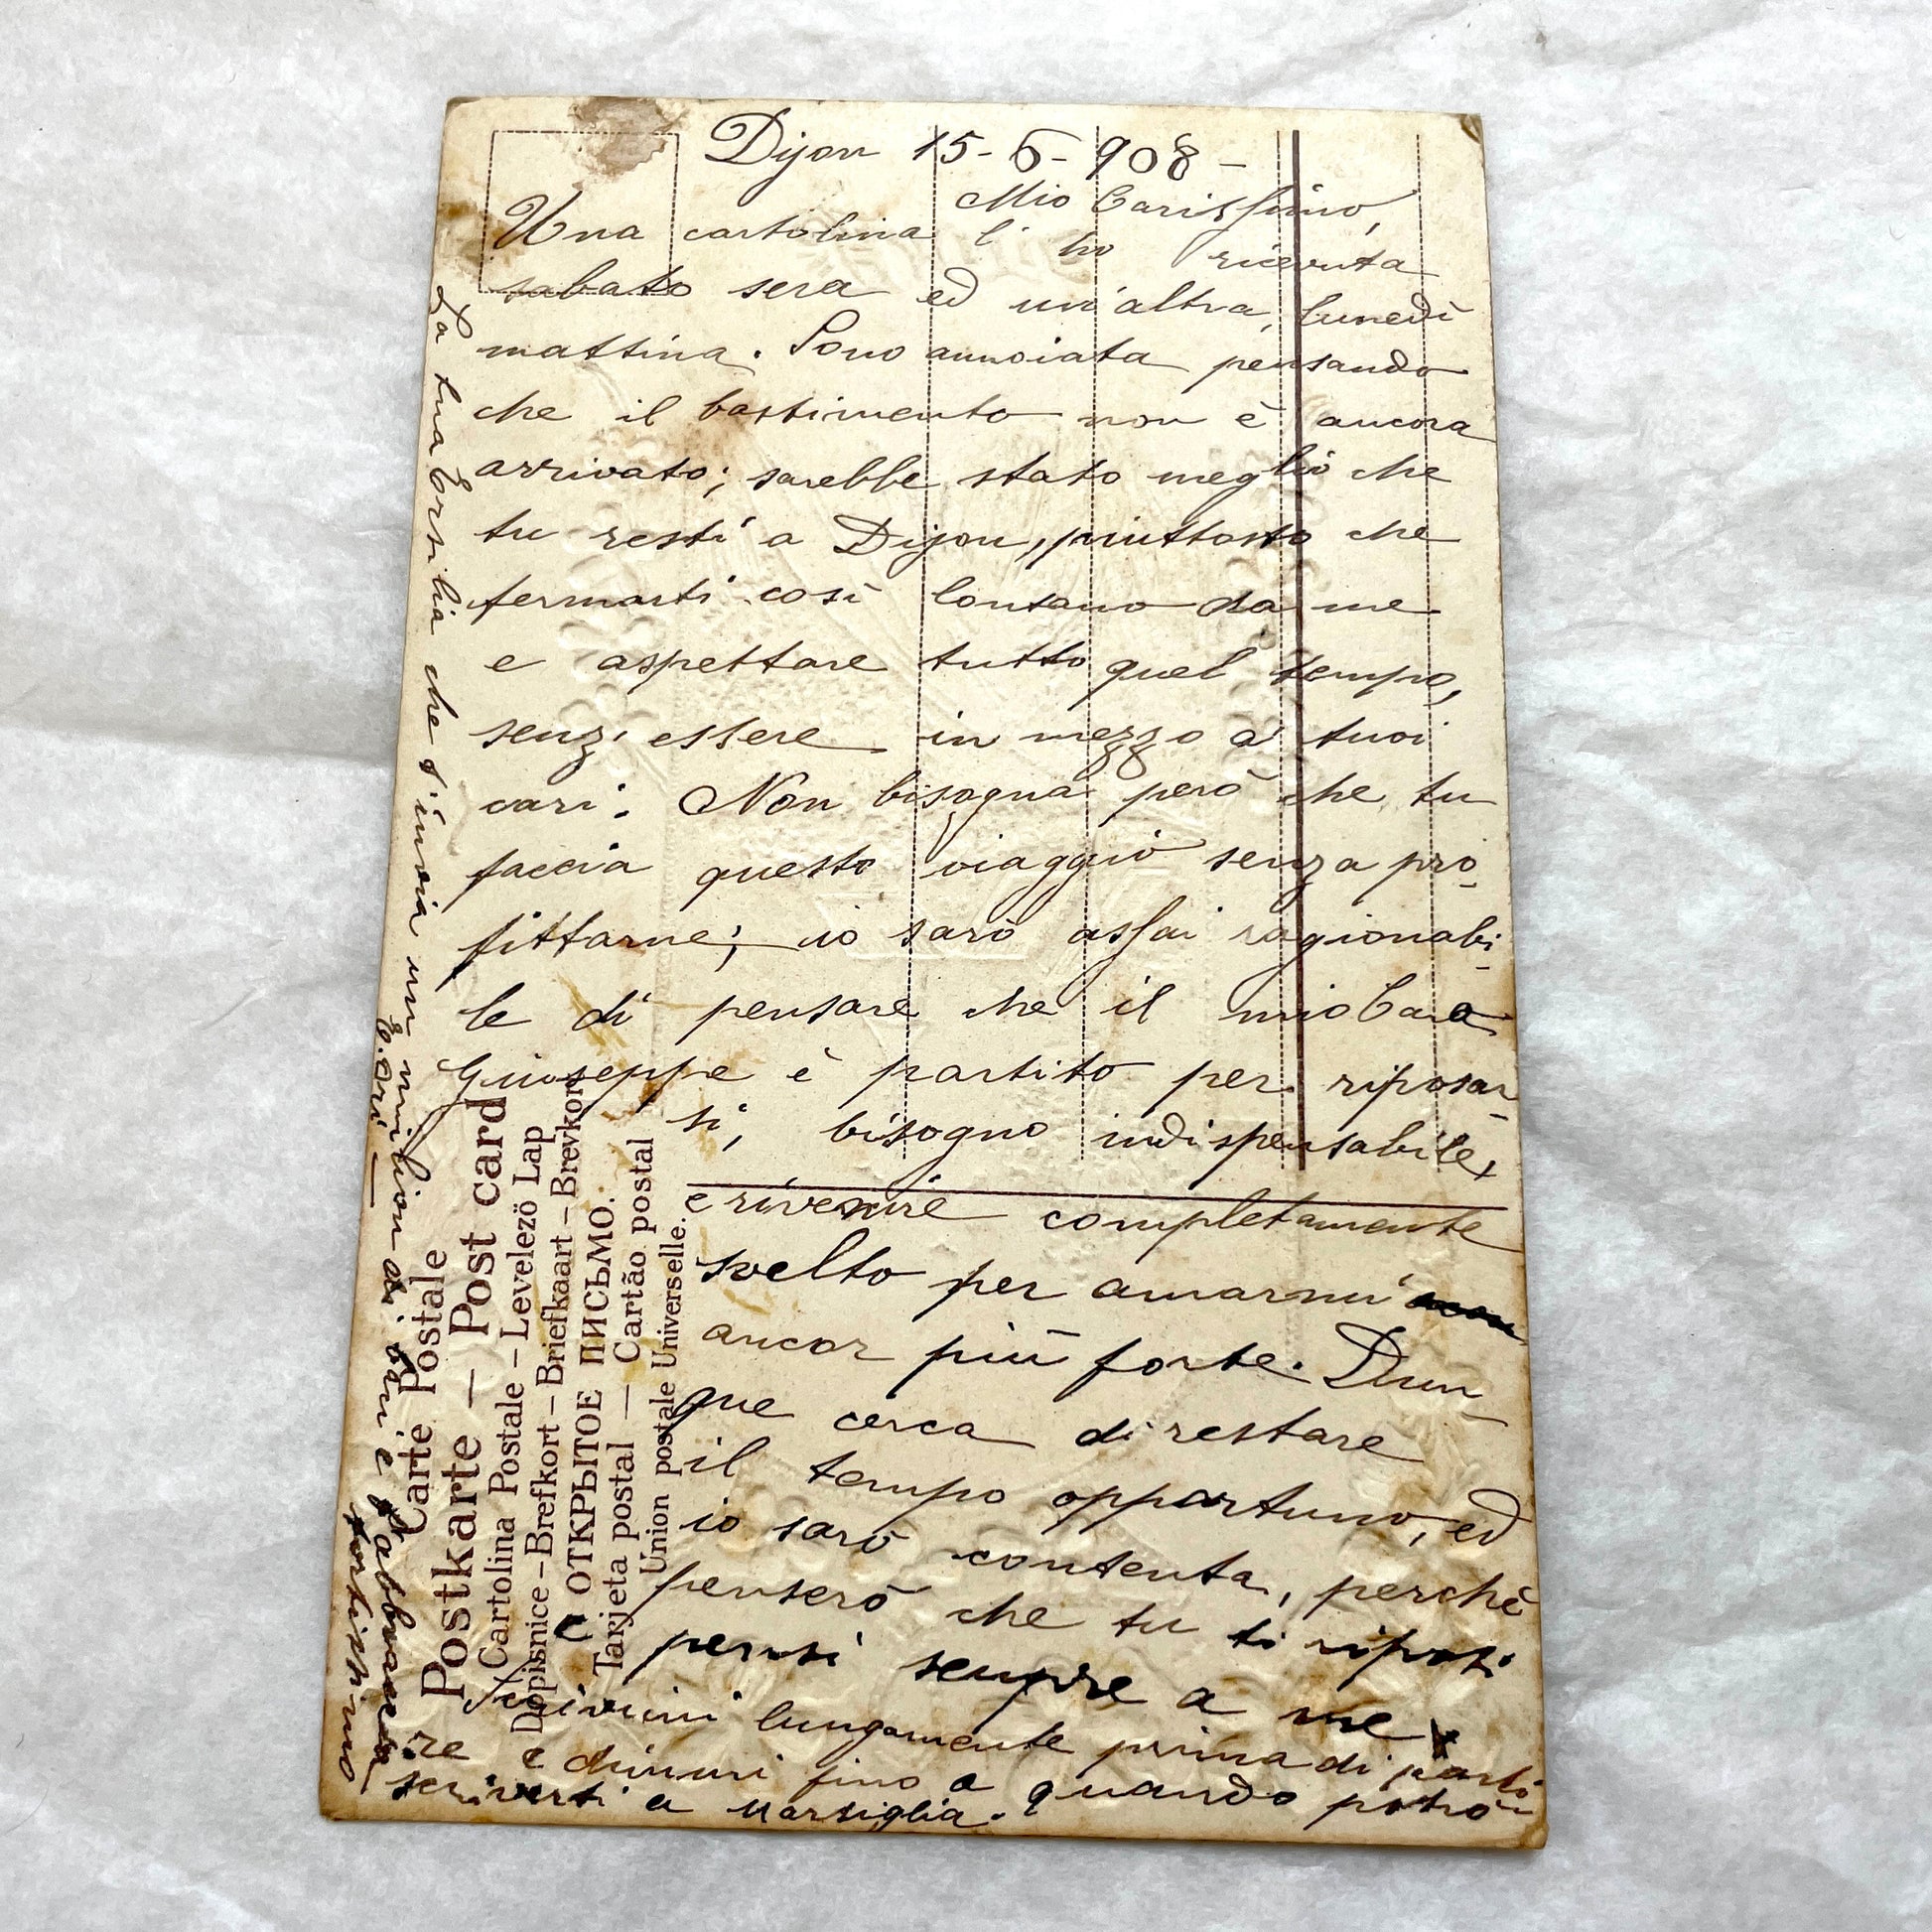 Dijon 15-6-908-
Mio Carissimo,
Una cartolina l'ho ricevuta
sabato sera ed un'altra, lunedì
mattina. Sono annoiata pensando
che il bastimento non è ancora
arrivato; sarebbe stato meglio che
tu resti a Dijon, piuttosto che
fermarti così lontano da me
e aspettare tutto quel tempo,
senz'essere in mezzo a' tuoi
cari. Non bisogna però che tu
faccia questo viaggio senza pro-
fittarne; io sarò assai ragionabi-
le di pensare che il mio Caro
Giuseppe è partito per riposar-
si, bisogno indispensabile,
e rivenire completamente
svelto per amarmi
ancor più forte. Dun-
que cerca di restare
il tempo opportuno, ed
io sarò contenta, perchè
penserò che tu ti riposi
e pensi sempre a me
Scrivimi lungamente prima di parti-
re e dimmi fino a quando potrò
scriverti a Marsiglia.
La tua Ersilia che t'invia un milion di beni e t'abbraccia
fortissimo
E. Ori-
Carte Postale
Postkarte — Post card
Cartolina Postale – Levelező Lap
Dopisnice – Brefkort – Briefkaart – Brevkort
ОТКРЫТОЕ ПИСЬМО.
Tarjeta postal — Cartão postal
Union postale Universelle.